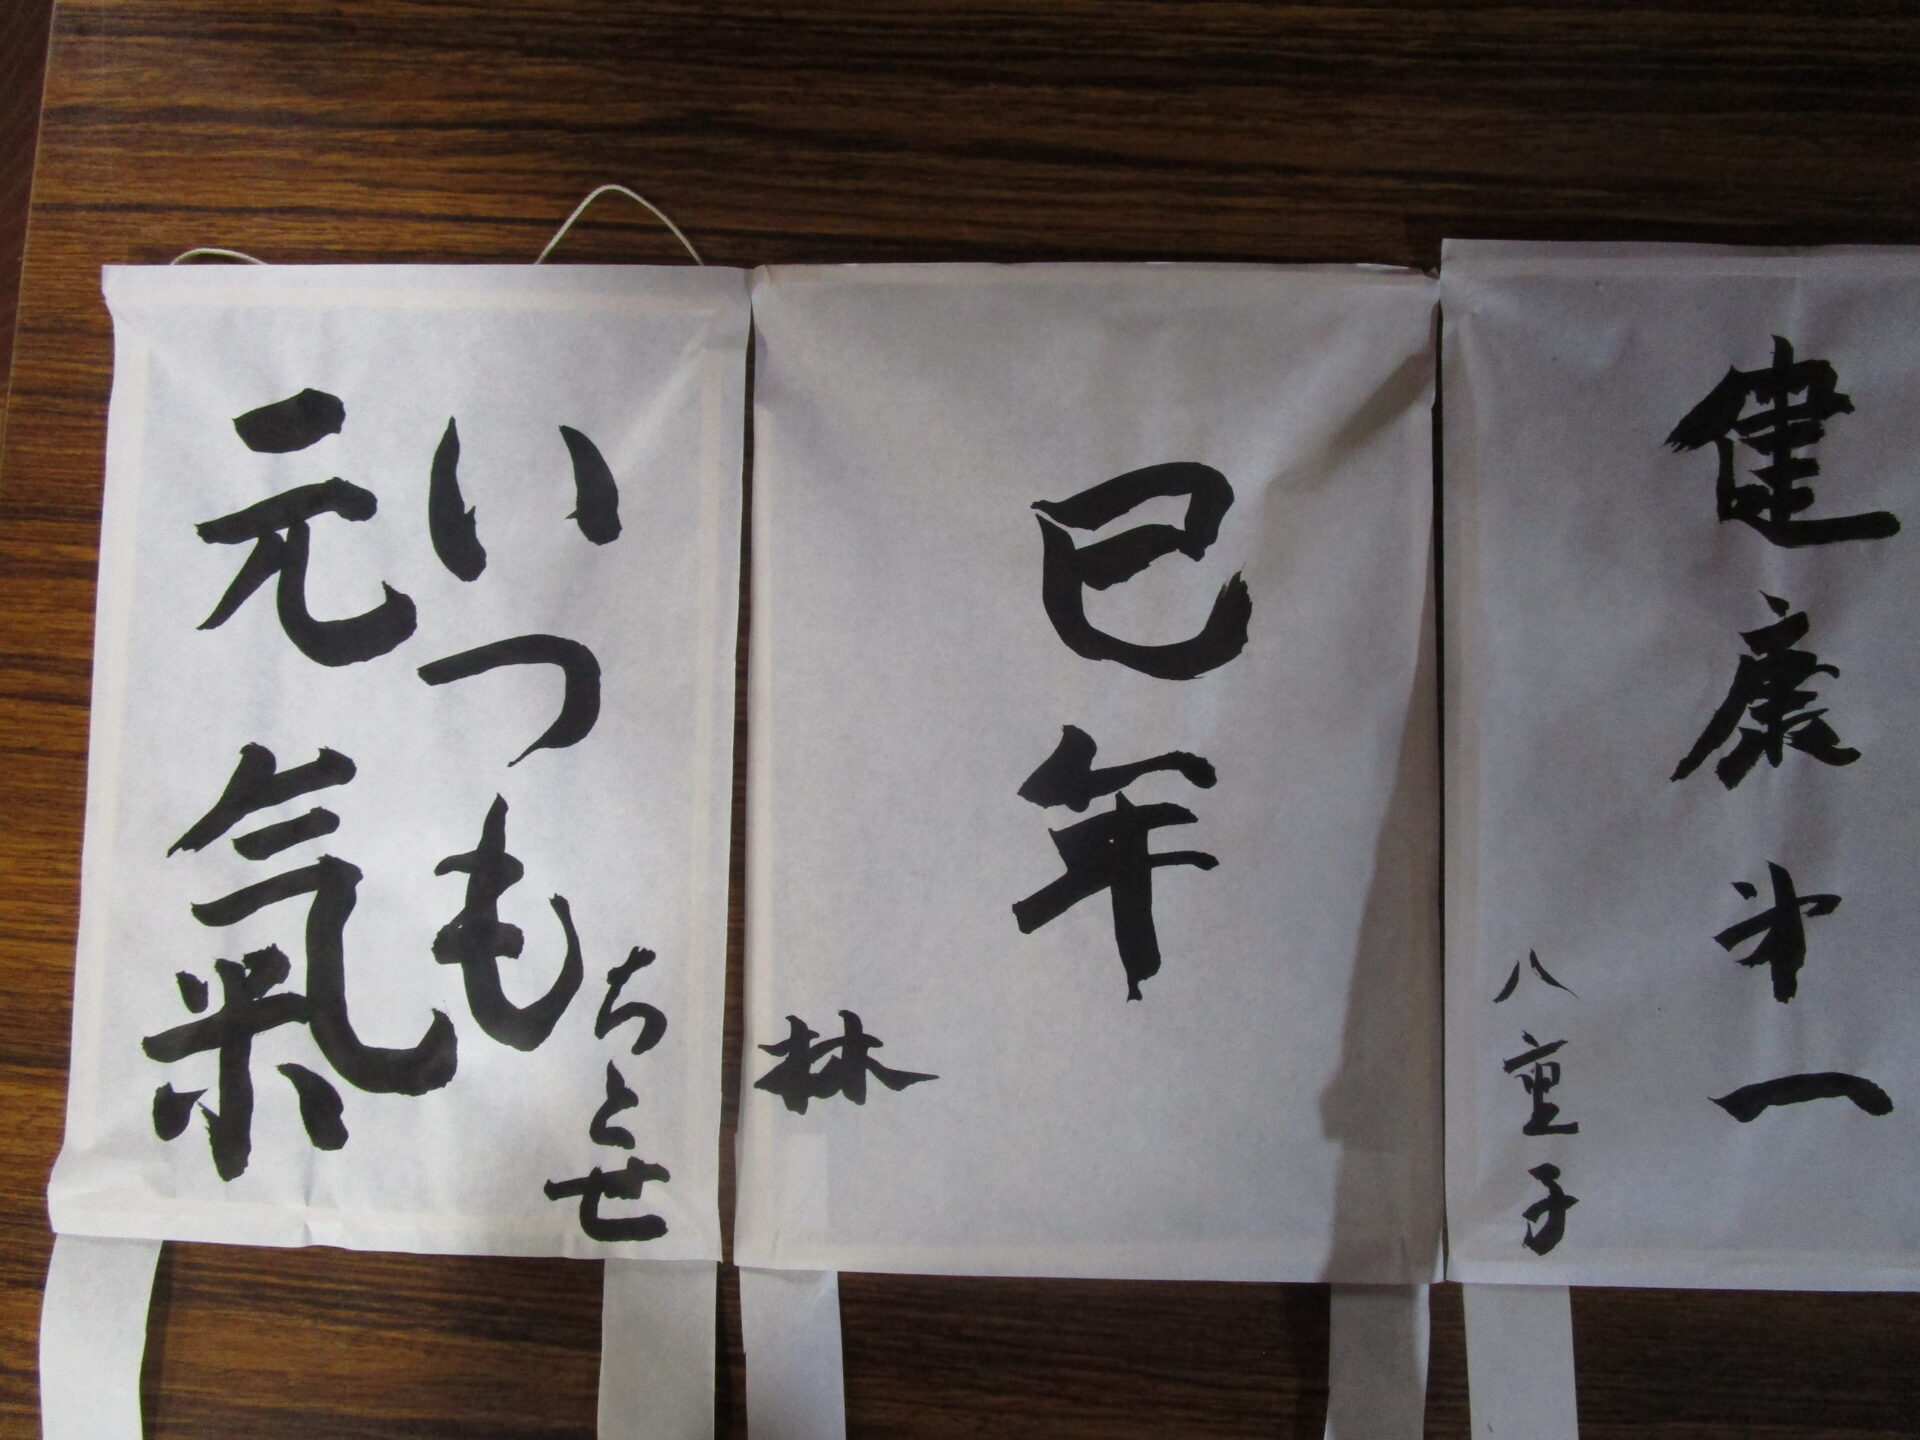 いつも
元氣
ちとせ
巳年
林
健康才一
八重子